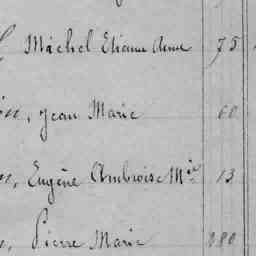 Máchel Etienne Anne 75
, Jean Marie 60
, Eugène Ambroise Mie 13
, Pierre Marie 80